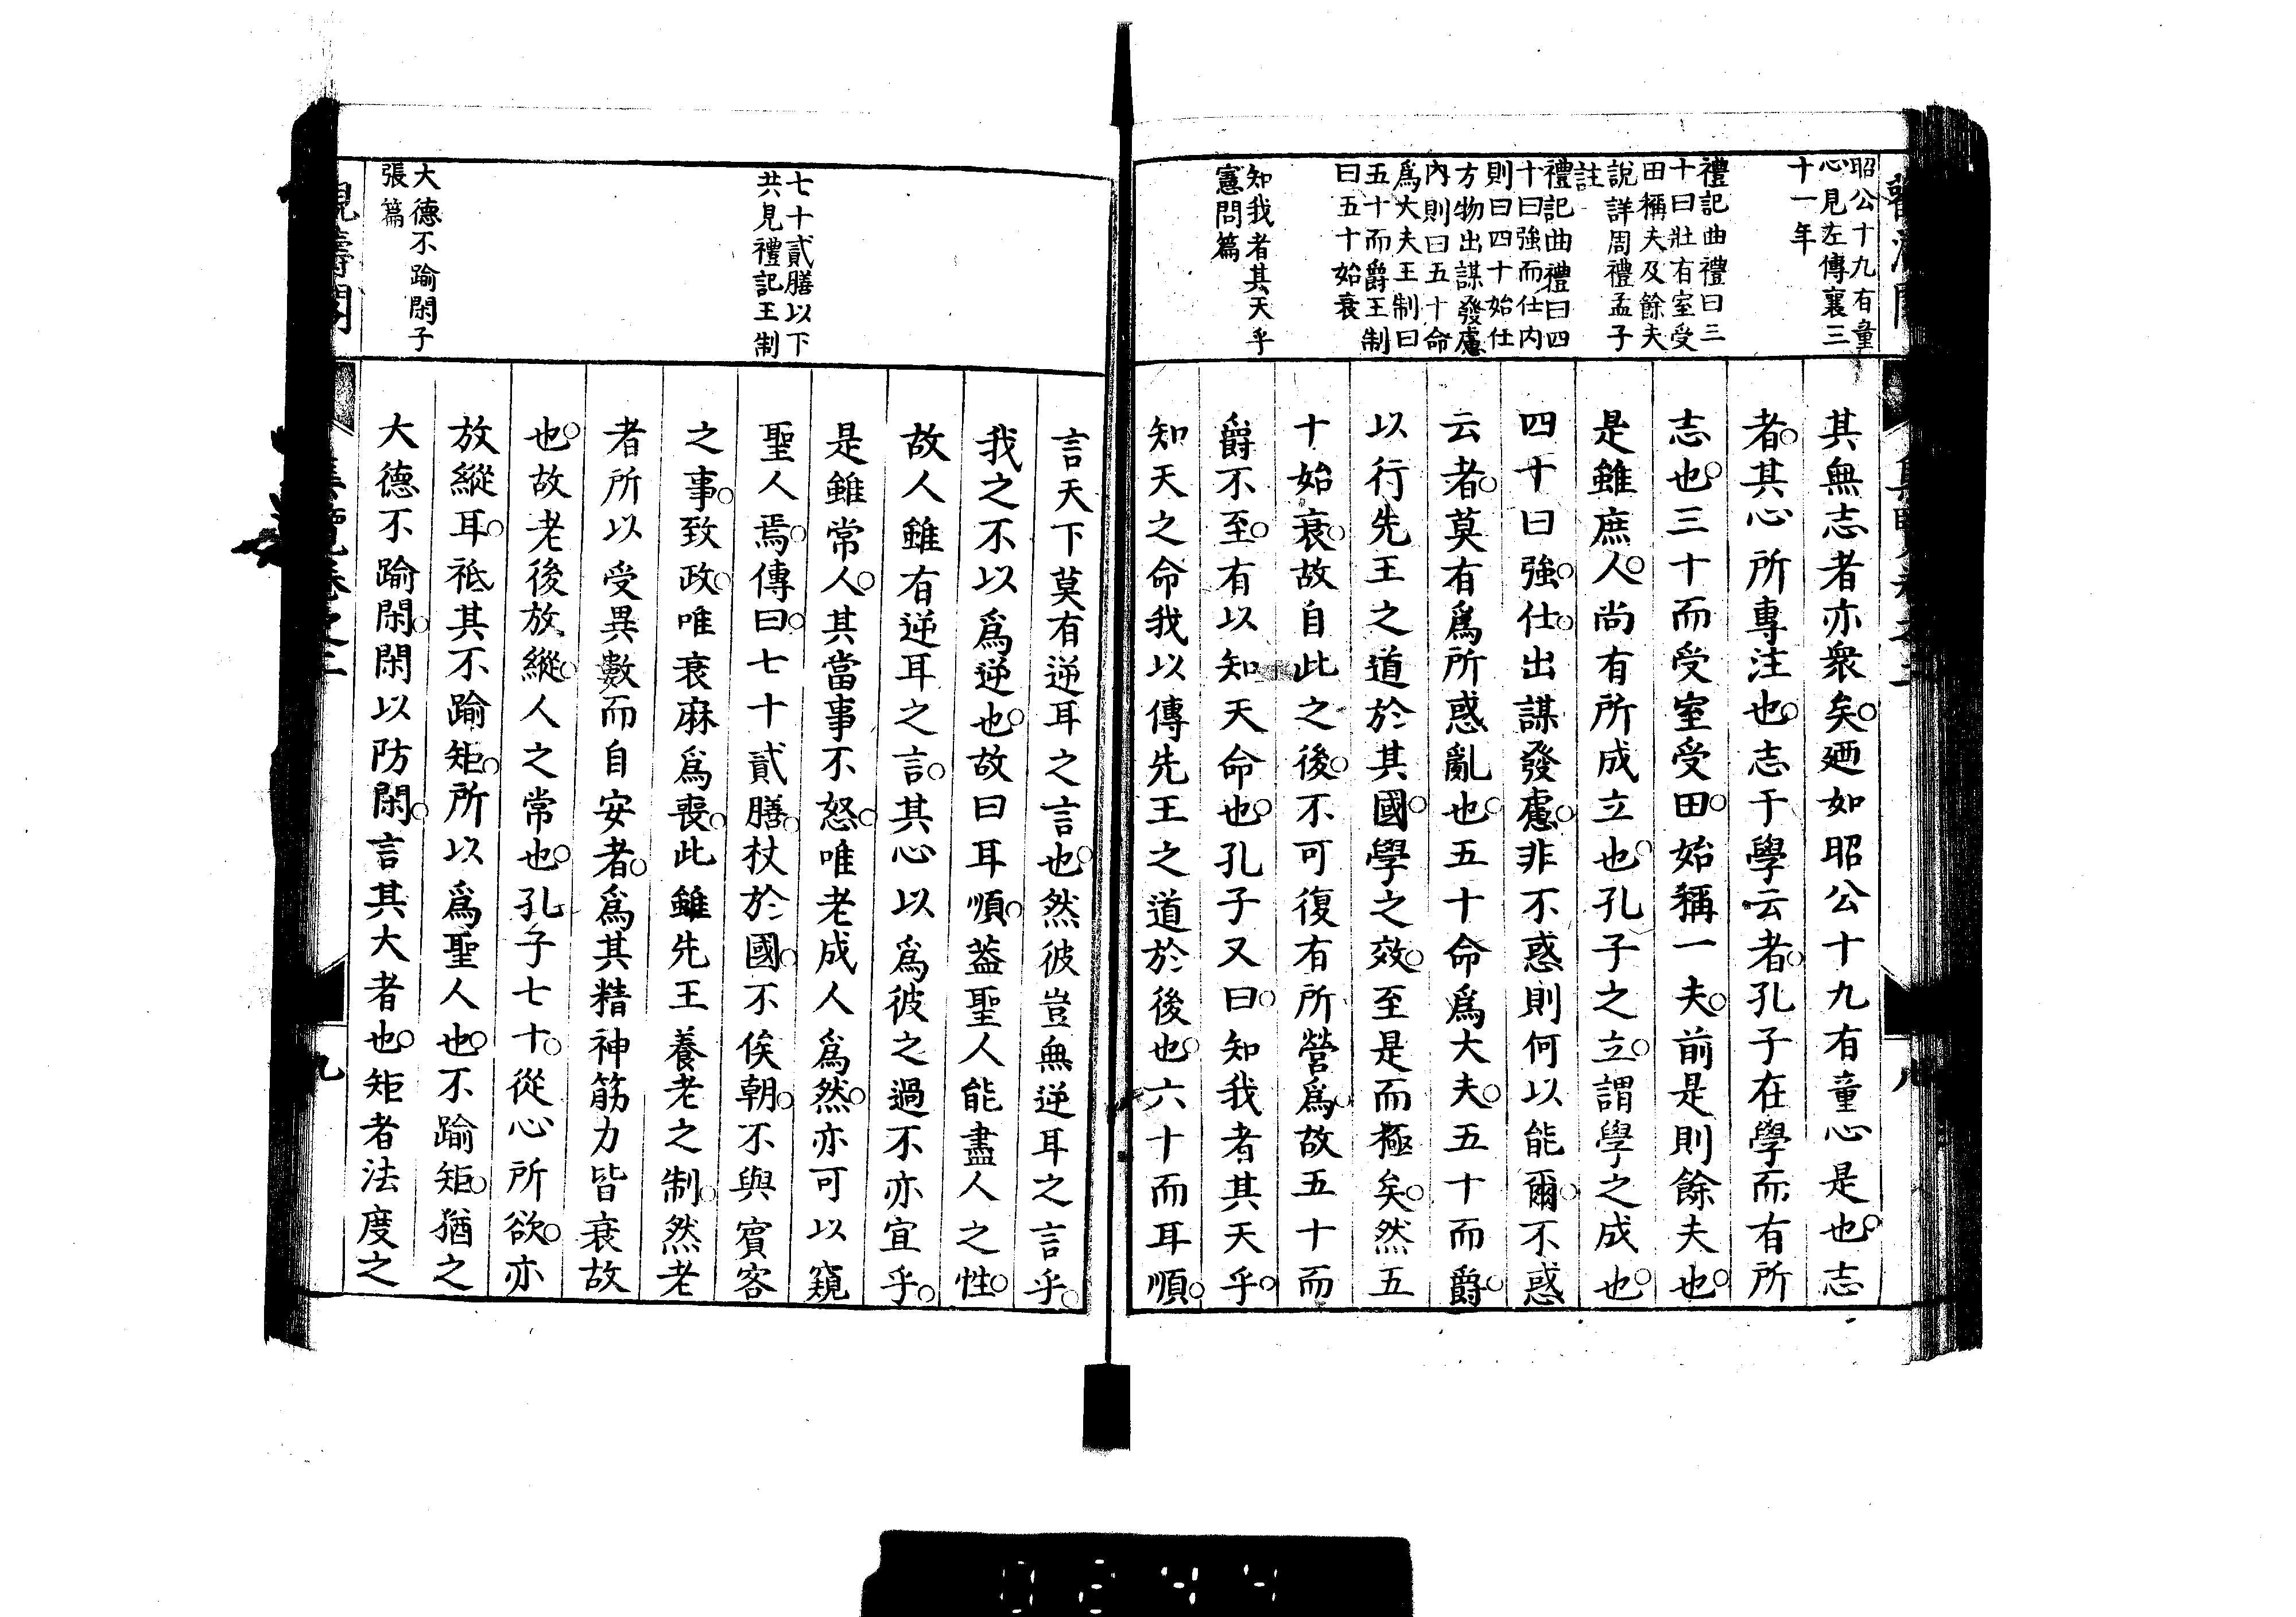 昭公十九有童
心見左傳襄三
十一年
禮記曲禮曰三
十曰壯有室受
田稱夫及餘夫
說詳周禮孟子
註
禮記曲禮曰四
十曰強而仕內
則曰四十始仕
方物出謀發慮
內則曰五十命
爲大夫王制曰
五十而爵王制
曰五十始衰
知我者其天乎
憲問篇
其無志者亦衆矣。廼如昭公十九有童心是也。志
者。其心所專注也。志于學云者。孔子在學而有所
志也。三十而受室受田。始稱一夫。前是則餘夫也。
是雖庶人。尚有所成立也。孔子之立。謂學之成也。
四十曰強。仕。出謀發慮。非不惑則何以能爾。不惑
云者。莫有爲所惑亂也。五十命爲大夫。五十而爵。
以行先王之道於其國。學之效。至是而極矣。然五
十始衰。故自此之後。不可復有所營爲。故五十而
爵不至。有以知天命也。孔子又曰。知我者其天乎。
知天之命我以傳先王之道於後也。六十而耳順。
七十貳膳以下
共見禮記王制
大德不踰閑子
張篇
言天下莫有逆耳之言也。然彼豈無逆耳之言乎。
我之不以爲逆也。故曰耳順。蓋聖人能盡人之性。
故人雖有逆耳之言。其心以爲彼之過不亦宜乎。
是雖常人。其當事不怒。唯老成人爲然。亦可以窺
聖人焉。傳曰。七十貳膳。杖於國。不俟朝。不與賓客
之事。致政。唯衰麻爲喪。此雖先王養老之制。然老
者所以受異數而自安者。爲其精神筋力皆衰故
也。故老後放縱。人之常也。孔子七十。從心所欲。亦
放縱耳。祗其不踰矩。所以爲聖人也。不踰矩。猶之
大德不踰閑。閑以防閑。言其大者也。矩者法度之
九